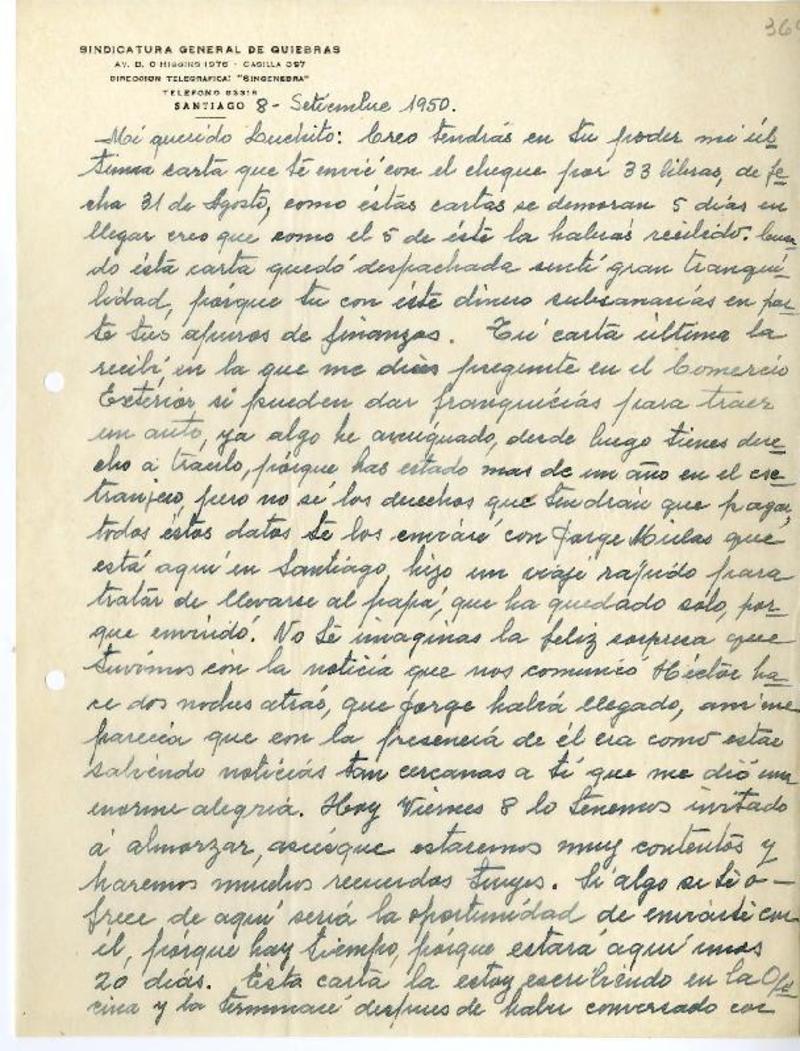 369
SINDICATURA GENERAL DE QUIEBRAS
AV. B. O'HIGGINS 1976 - CASILLA 397
DIRECCION TELEGRAFICA: "SINGENEBRA"
TELEFONO 83318
SANTIAGO 8 - Setiembre 1950.
Mi querido Luchito: Creo tendrás en tu poder mi úl
tima carta que te envié con el cheque por 33 libras, de fe
cha 31 de Agosto, como éstas cartas se demoran 5 dias en
llegar creo que como el 5 de éste la habrás recibido. Cuan
do ésta carta quedó despachada sentí gran tranqui
lidad, pórque tu con éste dinero subsanarías en par
te tus apuros de finanzas. Tu carta última la
recibí en la que me dices pregunte en el Comercio
Exterior si pueden dar franquicias para traer
un auto, ya algo he averiguado, desde luego tienes dere
cho a traerlo, pórque has estado mas de un año en el ex
tranjero, pero no sé los derechos que tendrán que pagar,
todos éstos datos te los enviaré con Jorge que
está aquí en Santiago, hizo un viaje rápido para
tratar de llevarse al papá, que ha quedado sólo, por
que enviudó. No te imaginas la feliz sorpresa que
tuvimos con la noticia que nos comunicó Héctor ha
ce dos noches atrás, que Jorge había llegado, a mi me
parecía que con la presencia de él era como estar
sabiendo noticias tan cercanas a tí que me dió una
enorme alegria. Hoy Viernes 8 lo tenemos invitado
á almorzar, asíesque estaremos muy contentos y
haremos muchos recuerdos tuyos. Si algo se te o-
frece de aquí será la oportunidad de enviarte con
él, pórque hay tiempo, pórque estará aquí unos
20 dias. Esta carta la estoy escribiendo en la Ofi
cina y la terminaré despues de haber conversado con